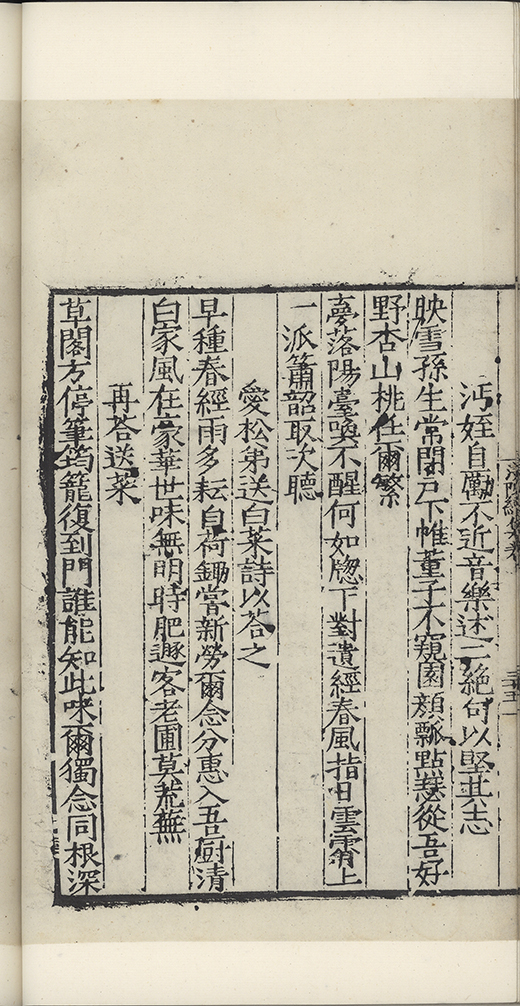 沔姪自勵不近音樂述二絕句以堅其志
映雪孫生常閉戸下帷董子不窺園顔瓢點瑟從吾好
野杏山桃任爾繁
夣落陽臺喚不醒何如牎下對遺經春風指日雲霄上
一派簫韶取次聽
愛松弟送白菜詩以荅之
早種春經雨多耘自荷鋤嘗新勞爾念分惠入吾廚清
白家風在家華世味無明時肥遯客老圃莫荒蕪
再荅送菜
草閣方停筆筠籠復到門誰能知此味爾獨念同根深